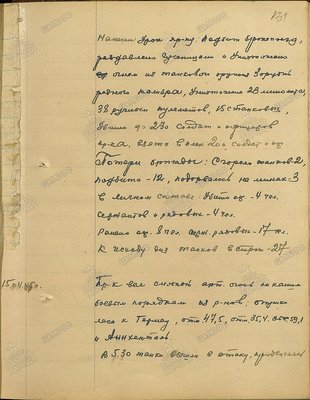 131
Нанесен урон пр-ку. Подбит бронепоезд,
раздавлено гусеницами и уничтожено
огнем из танкового оружия 3 орудия
разного калибра, уничтожено 28 миномета,
38 ручных пулеметов, 15 станковых,
убито до 230 солдат и офицеров
пр-ка, взято в плен 200 солдат и оф.
Потери бригады: Сгорело танков-2,
подбито -12, подорвалось на минах-3
в личном составе: Убито оф. - 4 чел.
сержантов и рядовых - 4 чел.
Ранено оф. 8 чел серж. рядовых - 17 чел.
К исходу дня танков в строю - 27
15.04.45г.
Пр-к вел сильный арт. огонь по нашим
боевым порядкам из р-нов:
леса в Гермау, отм 47,5, отм. 35,4, 59,1
и Анхенталь.
В 5.30 танки вышли в атаку,